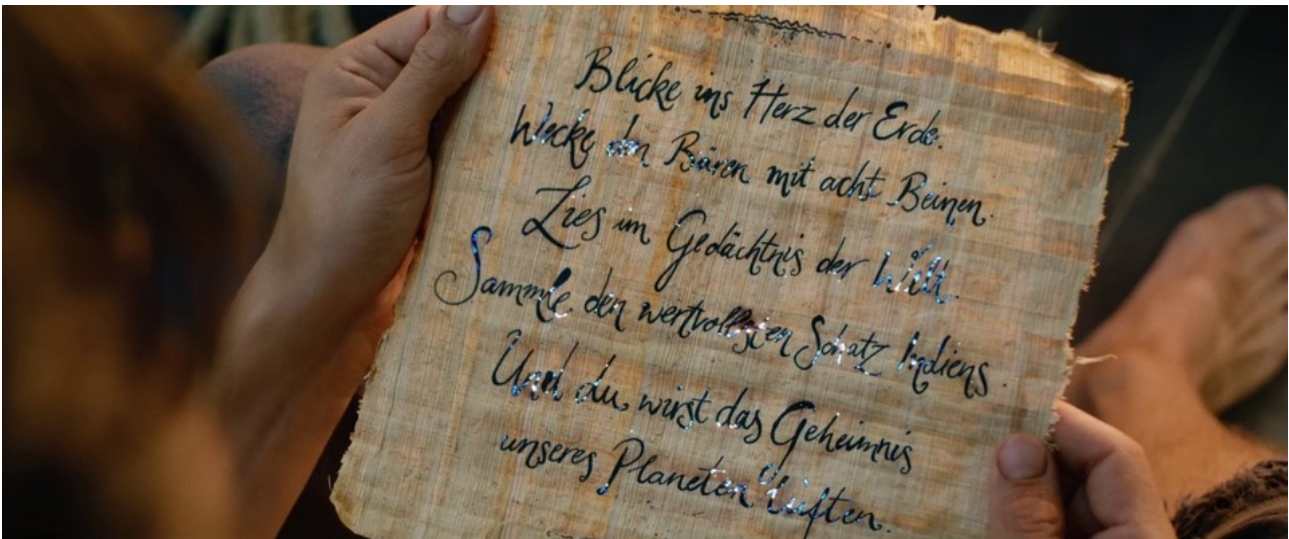 Blicke ins Herz der Erde.
Wecke den Bären mit acht Beinen.
Lies im Gedächtnis der Welt.
Sammle den wertvollsten Schatz Indiens.
Und du wirst das Geheimnis
unseres Planeten lüften.